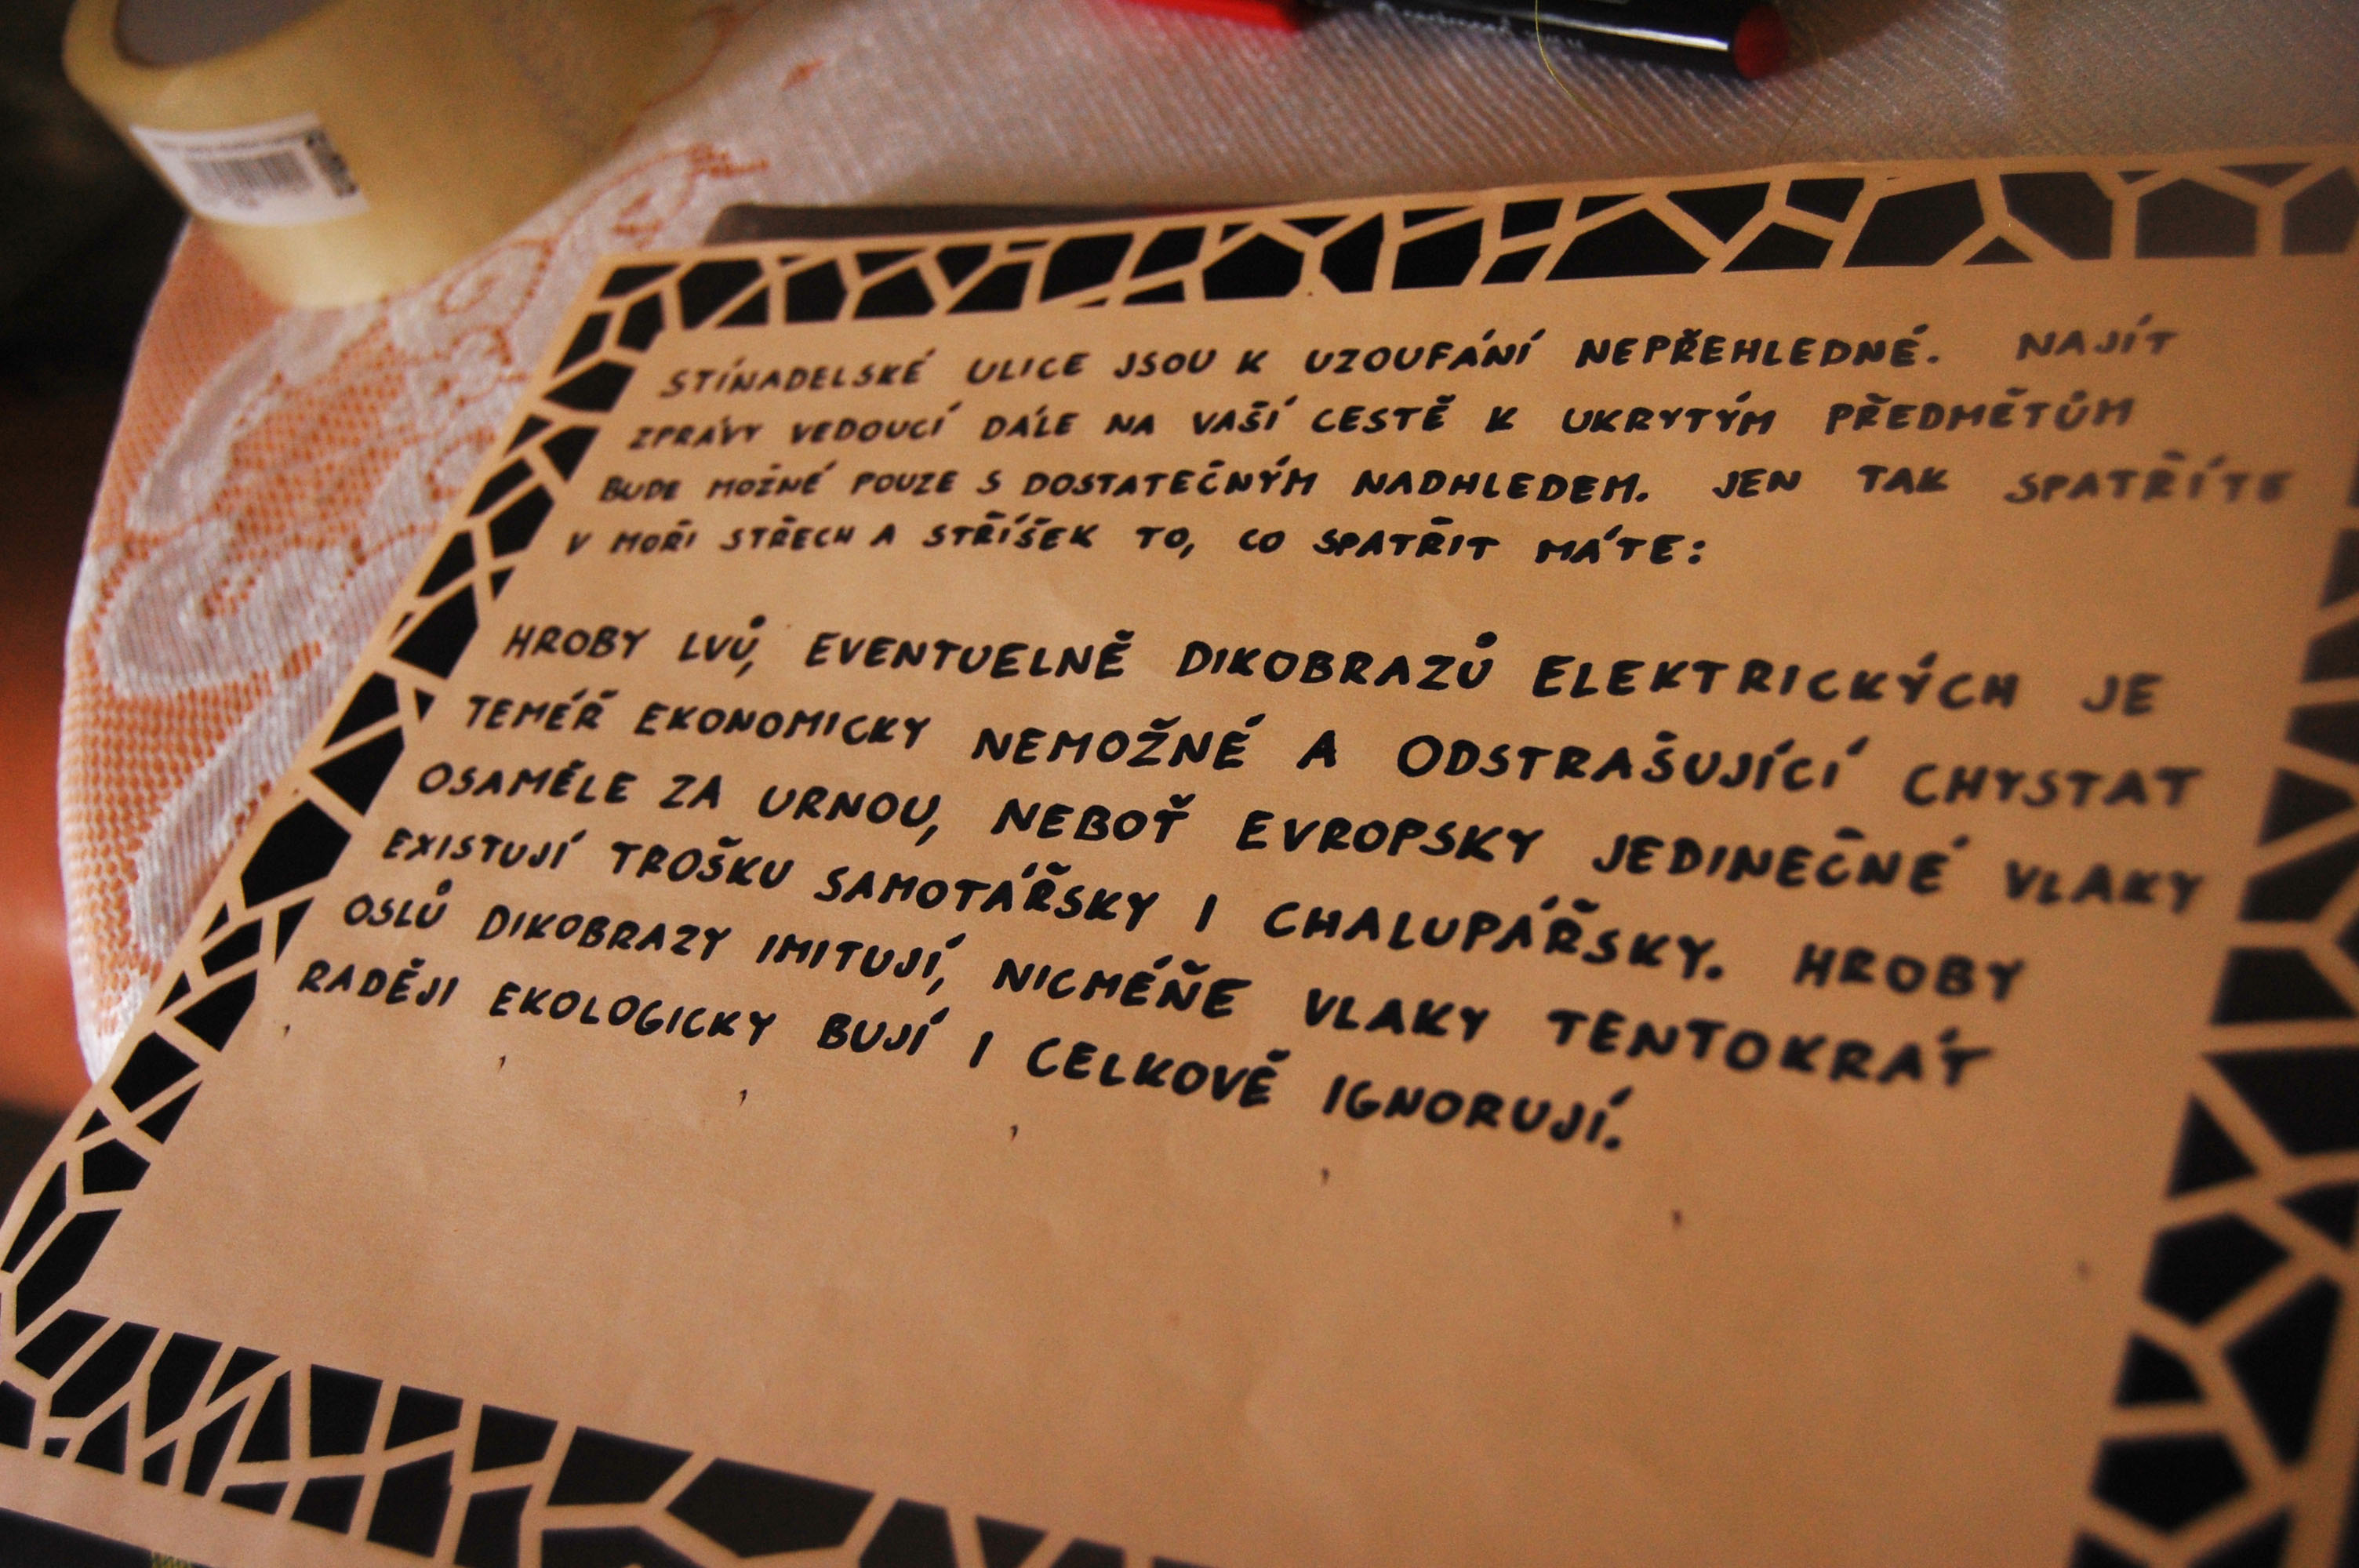 STÍNADELSKÉ ULICE JSOU K UZOUFÁNÍ NEPŘEHLEDNÉ. NAJÍT
ZPRÁVY VEDOUCÍ DÁLE NA VAŠÍ CESTĚ K UKRYTÝM PŘEDMĚTŮM
BUDE MOŽNÉ POUZE S DOSTATEČNÝM NADHLEDEM. JEN TAK SPATŘÍTE
V MOŘI STŘECH A STŘÍŠEK TO, CO SPATŘIT MÁTE:
HROBY LVŮ, EVENTUELNĚ DIKOBRAZŮ ELEKTRICKÝCH JE
TÉMĚŘ EKONOMICKY NEMOŽNÉ A ODSTRAŠUJÍCÍ CHYSTAT
OSAMĚLE ZA URNOU, NEBOŤ EVROPSKY JEDINEČNÉ VLAKY
EXISTUJÍ TROŠKU SAMOTÁŘSKY I CHALUPÁŘSKY. HROBY
OSLŮ DIKOBRAZY IMITUJÍ, NICMÉŇE VLAKY TENTOKRÁT
RADĚJI EKOLOGICKY BUJÍ I CELKOVĚ IGNORUJÍ.